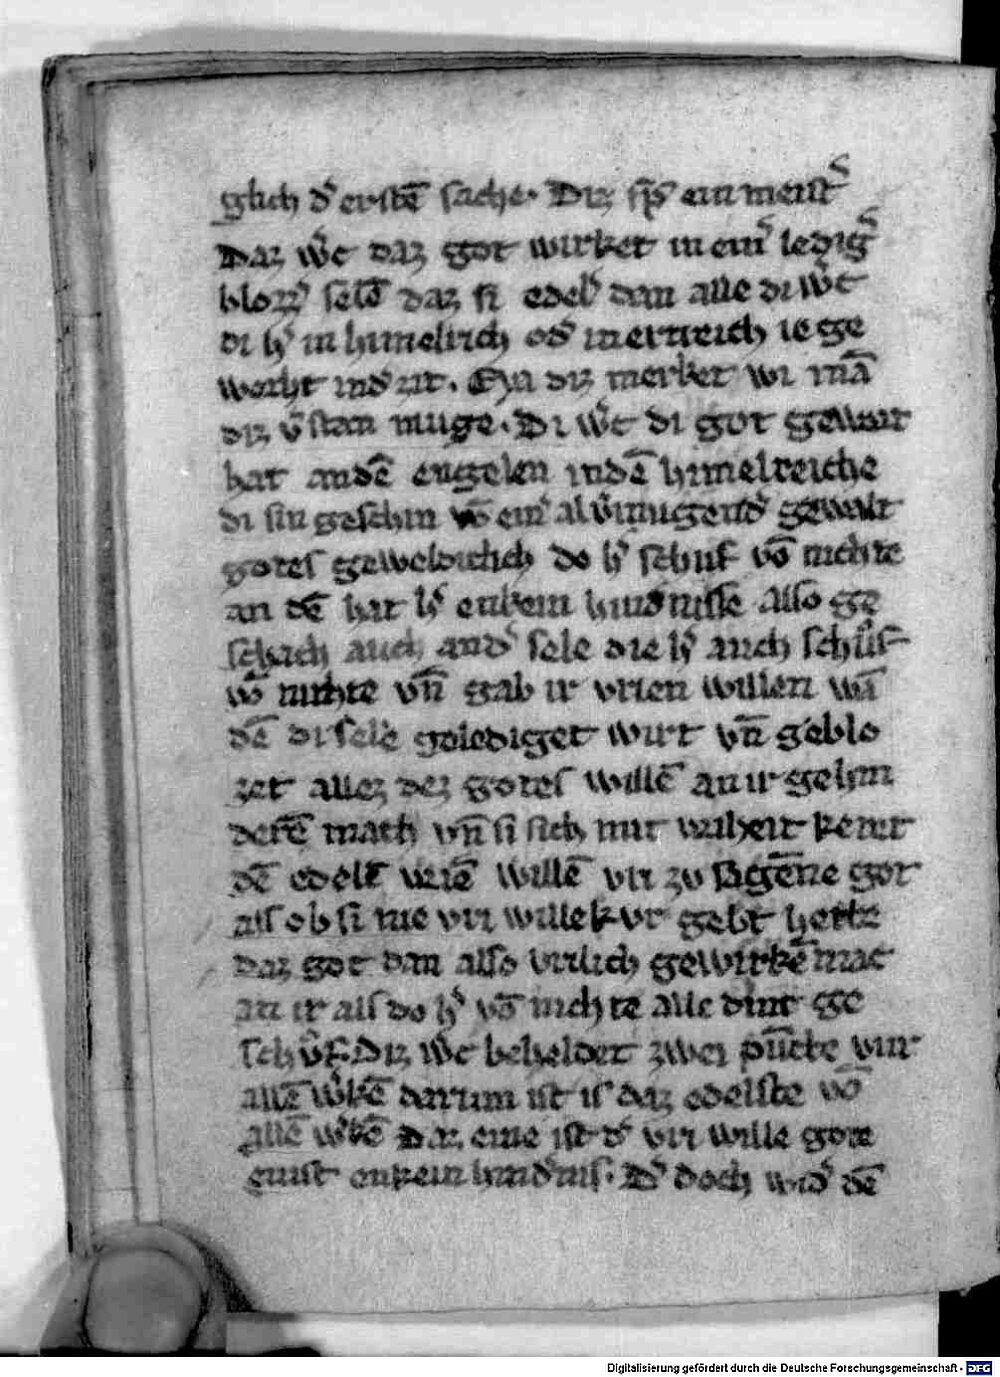 glich d᾽ erstē sache. Diz sp᾽ ein meist᾽
Daz w᾽c daz got wirket in ein᾽ ledig᾽
blozz᾽ selē daz si edel᾽ dan alle di w᾽c
di h᾽ in himelrich od᾽ in ertreich ie ge
worht in d᾽ zit. Eya diz merket wi mā
diz v᾽stan muge. Di w᾽c di got gewurt
hat an dē engelen in dē himelreiche
di sin geschin vō ein᾽ al v᾽mugend᾽ gewalt
gotes geweldichlich do h᾽ schuf vō nichte
an dē hat h᾽ enkein hind᾽nisse also ge
schach auch an d᾽ sele die h᾽ auch schůf
vō nichte vn̄ gab ir vrien willen wā
dē di sele gelediget wirt vn̄ geblo
zet allez dez gotes willē an ir gehin
derē mach vn̄ si sich mit wiheit keret
dē edelē vriē willē vri zu sagēne got
als ob si nie vri willekur gebt hette
daz got dan also vrilich gewirkē mac
an ir als do h᾽ vō nichte alle dinc ge
schůf. Diz w᾽c beheldet zwei pūcte vur
allē w᾽kē darum ist is daz edelste vō
allē w᾽kē Daz eine ist d᾽ vri wille gote
enist enkein hind᾽nis. D᾽ doch wid᾽ dē
Digitalisierung gefördert durch die Deutsche Forschungsgemeinschaft - DFG